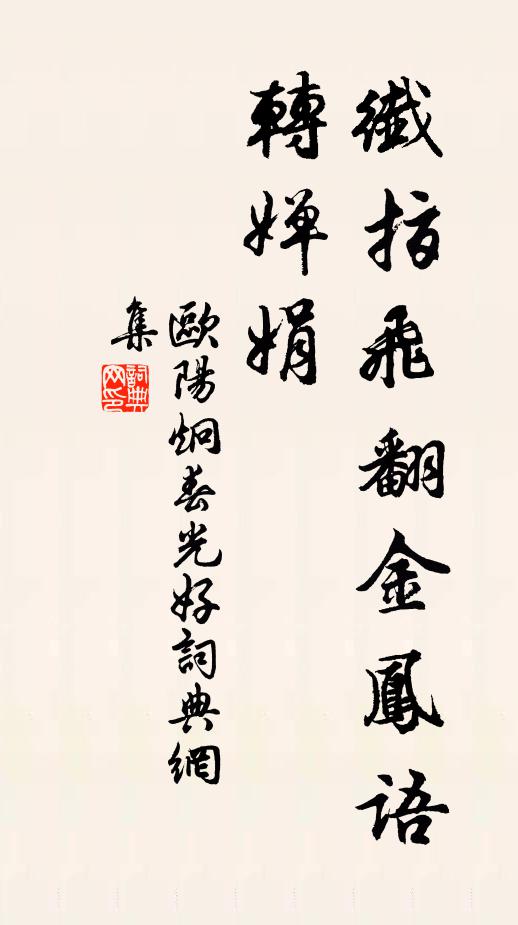 纖指飛翻金鳳語
轉嬋娟
歐陽炯春光好詞典網
集
詞典
网印